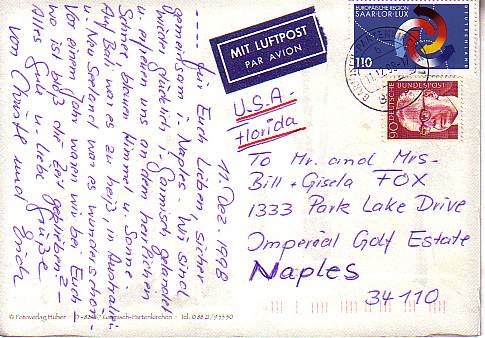 11. Dez. 1998
für Euch Lieben sicher
gemeinsam i. Naples. Wir sind
wieder glücklich i. Garmisch gelandet
u. erfreuen uns an dem herrlichen
Schnee, blauen Himmel u. Sonne.
Auf Bali war es zu heiß, in Australien
u. Neu Seeland war es wunderschön.
Vor einem Jahr waren wir bei Euch -
wo ist bloß die Zeit geblieben? -
Alles Gute u. liebe Grüße
von und Erich
MIT LUFTPOST
PAR AVION
U.S.A -
Florida
EUROPÄISCHE REGION
SAAR-LOR-LUX
DEUTSCHLAND
110
DEUTSCHE BUNDESPOST
90
To Mr. and Mrs-
Bill + Gisela FOX
1333 Park Lake Drive
Imperial Golf Estate
Naples
34110
© Fotoverlag Huber · Garmisch-Partenkirchen · Tel. 0 88 21/